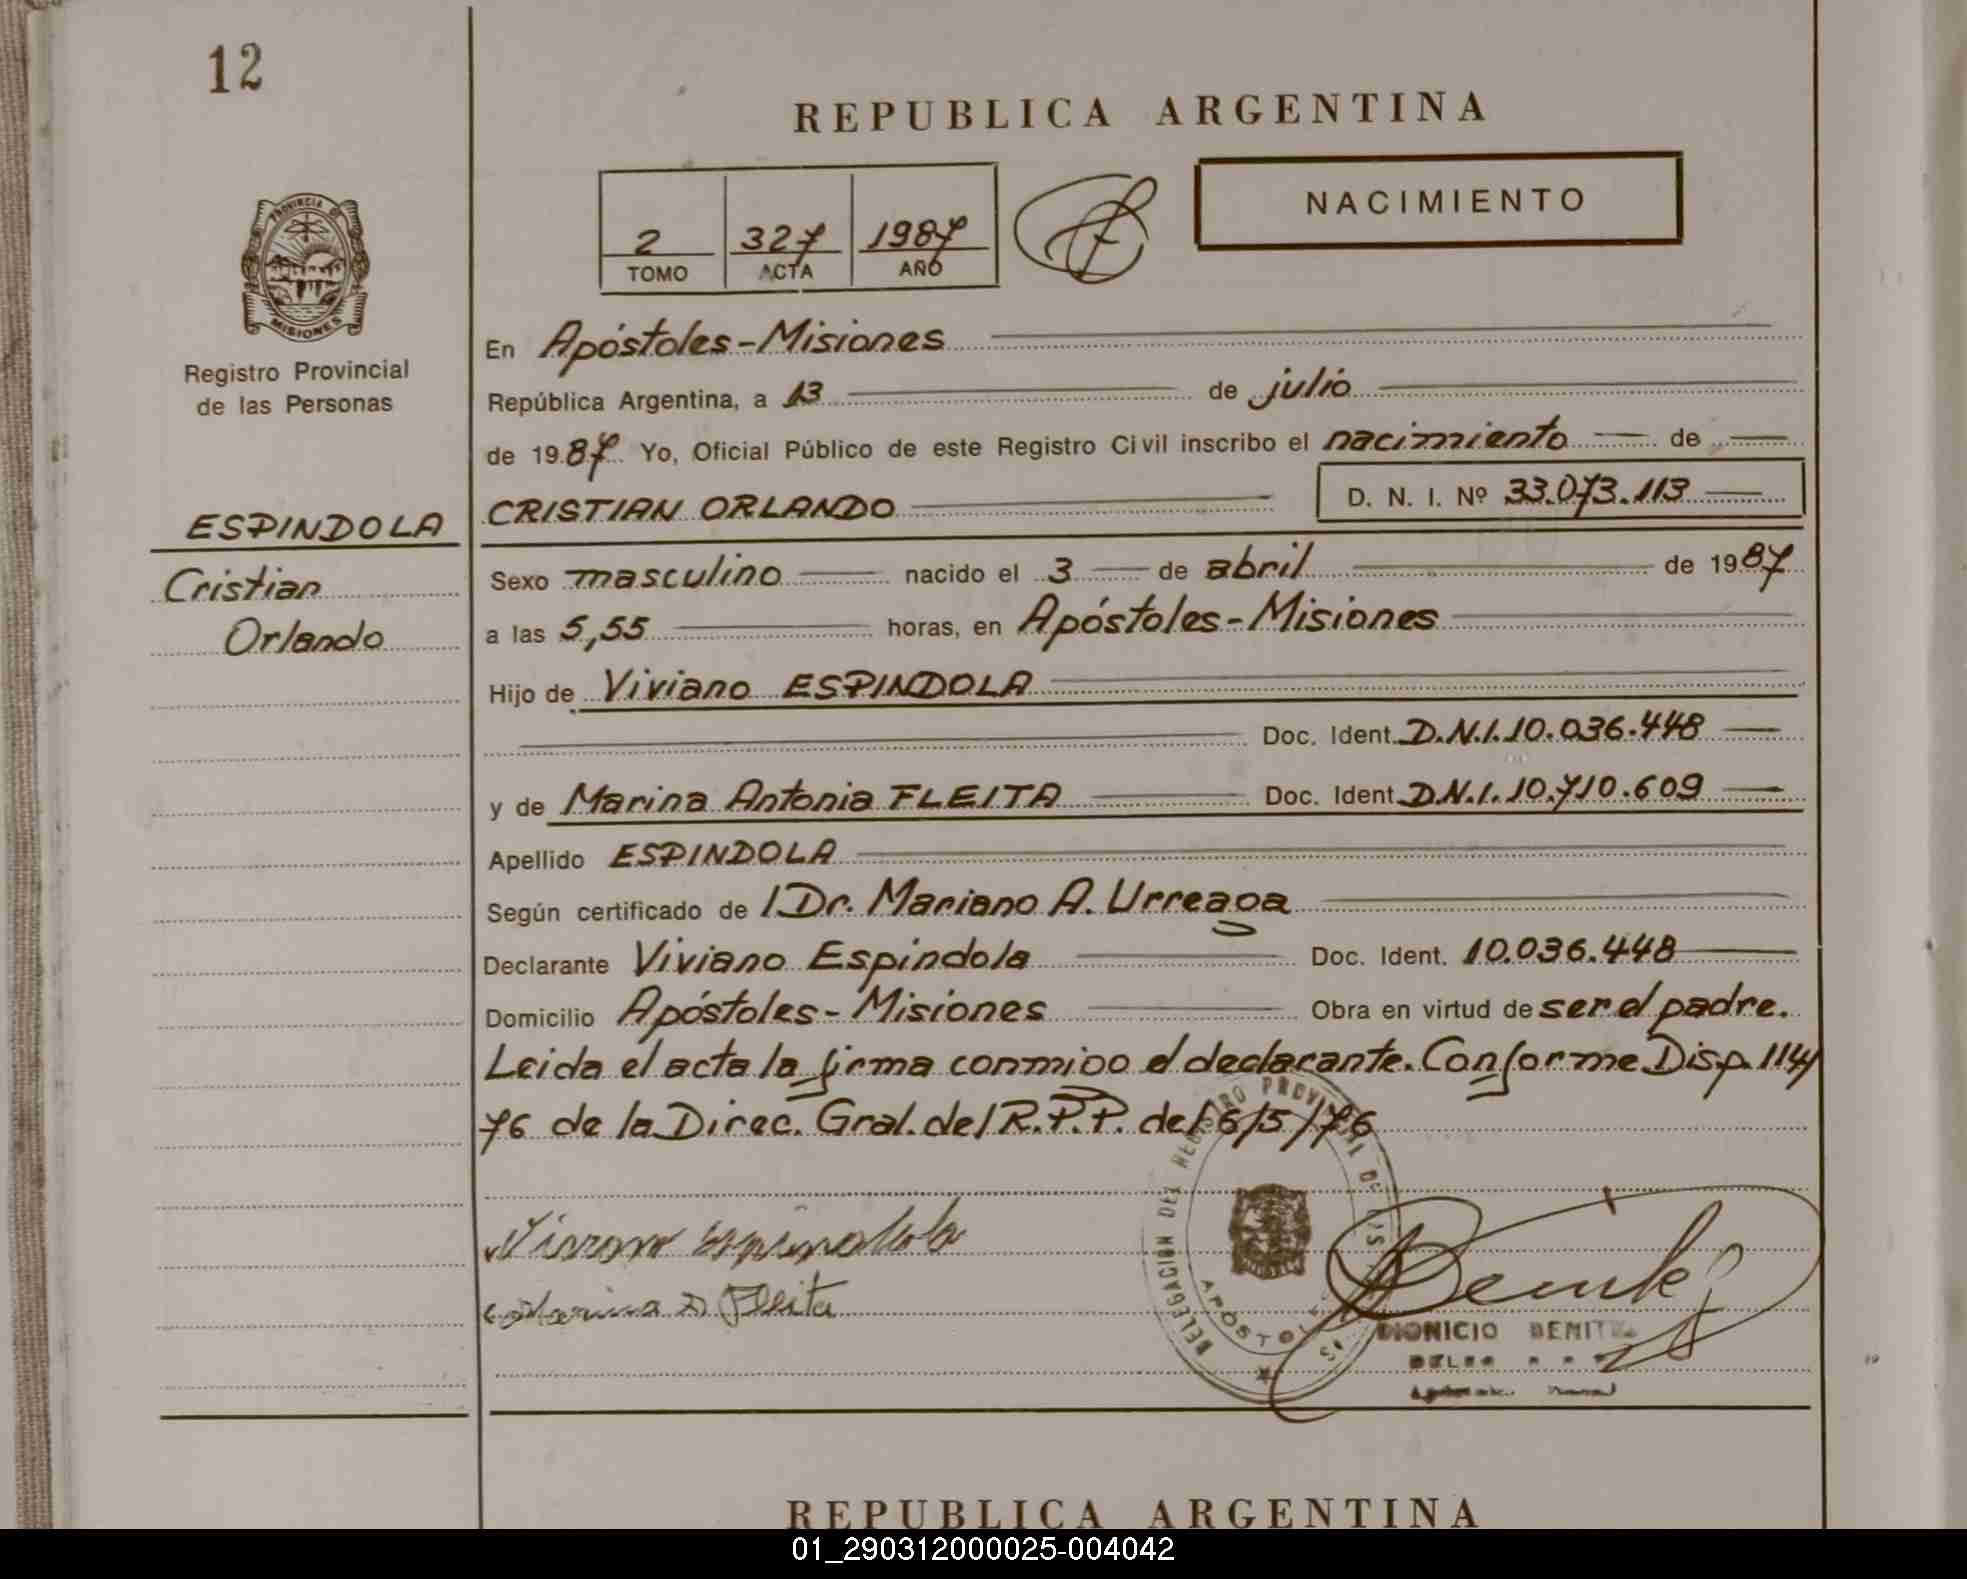 12
REPUBLICA ARGENTINA
NACIMIENTO
2 327 1987
TOMO ACTA AÑO
PROVINCIA DE
MISIONES
Registro Provincial
de las Personas
ESPINDOLA
Cristian
Orlando
En Apóstoles-Misiones
República Argentina, a 13 de julio
de 1987 Yo, Oficial Público de este Registro Civil inscribo el nacimiento de
CRISTIAN ORLANDO D. N. I. Nº 33.073.113
Sexo masculino nacido el 3 de abril de 1987
a las 5,55 horas, en Apóstoles-Misiones
Hijo de Viviano ESPINDOLA
Doc. Ident. D.N.I. 10.036.448
y de Marina Antonia FLEITA Doc. Ident. D.N.I. 10.710.609
Apellido ESPINDOLA
Según certificado de /Dr. Mariano A. Urreaga
Declarante Viviano Espindola Doc. Ident. 10.036.448
Domicilio Apóstoles-Misiones Obra en virtud de ser el padre.
Leida el acta la firma conmigo el declarante. Conforme Disp. 114/
76 de la Direc. Gral. del R.P.P. del 6/5/76
DELEGACIÓN DEL REGISTRO PROVINCIAL DE
APOSTOLES
Espindola
Fleita
DIONICIO BENITEZ
REPUBLICA ARGENTINA
01_290312000025-004042